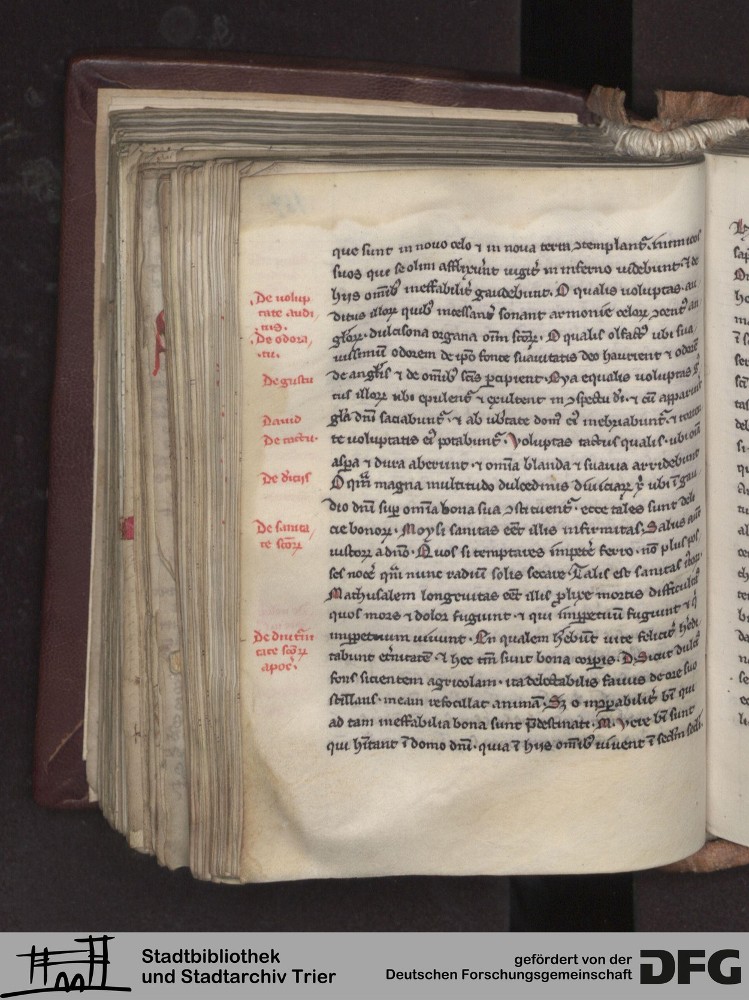 que sunt in nouo celo ⁊ in noua terra ɔtemplant᷑. inimicos
suos que se olim afflixerunt iugit᷑ in inferno uidebunt ⁊ de
hiis omīb᷒ ineffabilit᷑ gaudebunt. O qualis uoluptas au
ditus illoꝝ quib᷒ incessant᷑ sonant armonie celoꝝ ɔcent᷒ an
gloꝝ. dulcisona organa oīm scōꝝ. O qualis olfact᷒ ubi sua
uissimū odorem de ip̄o fonte suauitatis deo haurient ⁊ odorē
de angl̄is ⁊ de omīb᷒ sc̄is ꝑcipient. Eya equalis uoluptas
tus illoꝝ ubi epulent᷑ ⁊ exultent in ɔspectu dī. ⁊ cū apparuit
gl̄a dn̄i saciabunt᷑. ⁊ ab ub̄tate dom᷒ ei᷒ inebriabunt᷑. ⁊ torren
te uoluptatis ei᷒ potabunt᷑. Voluptas tactus qualis. ubi oīa
asꝑa ⁊ dura aberunt ⁊ omīa blanda ⁊ suauia arridebunt
O qm̄ magna multitudo dulcedinis diuiciaꝝ ubi ī gau
dio dn̄i suꝑ omīa bona sua ɔstituent᷑. ecce tales sunt deli
cie bonoꝝ. Moysi sanitas eēt illis infirmitas. Salus aut̄
iustoꝝ a dn̄o. Quos si temptares impet᷑e ferro. nō plus pos
ses noce᷑ qm̄ nunc radiū solis secare. Talis est sanitas illoꝝ.
Mathusalem longeuitas eēt illis ꝓlixe mortis difficultas
quos mors ⁊ dolor fugiunt ⁊ qui imꝑpetuū fugiunt ⁊ q̄
imꝑpetuum uiuunt. En qualem hēbūt uite felicit᷑ hedi
tabunt et᷑nitatē. ⁊ hec tm̄ sunt bona corꝑis. D. Sicut dulcis
fons sicientem agricolam. ita delectabilis fauus de ore suo
stillans. meam refocillat animā. Sꝫ o inꝑpabilit᷑ bt̄i qui
ad tam ineffabilia bona sunt p̄destinati. M. Vere bt̄i sunt
qui hītant ī domo dn̄i. quia ī hiis omīb᷒ uiuent ī seclm̄ secli.
De uolup
tate audi
tus.
De odora
tu.
De gustu
Dauid
De tactu.
De diciis
De sanita
te scōꝝ
De diut᷑ni
tate scōꝝ
apoc̄.
Stadtbibliothek
und Stadtarchiv Trier
gefördert von der
Deutschen Forschungsgemeinschaft
DFG